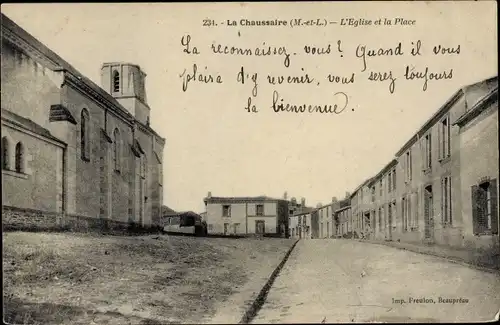 231. - La Chaussaire (M.-et-L.) — L'Eglise et la Place
La reconnaissez vous? Quand il vous
plaira d'y revenir, vous serez toujours
la bienvenue.
Imp. Freulon, Beaupréau